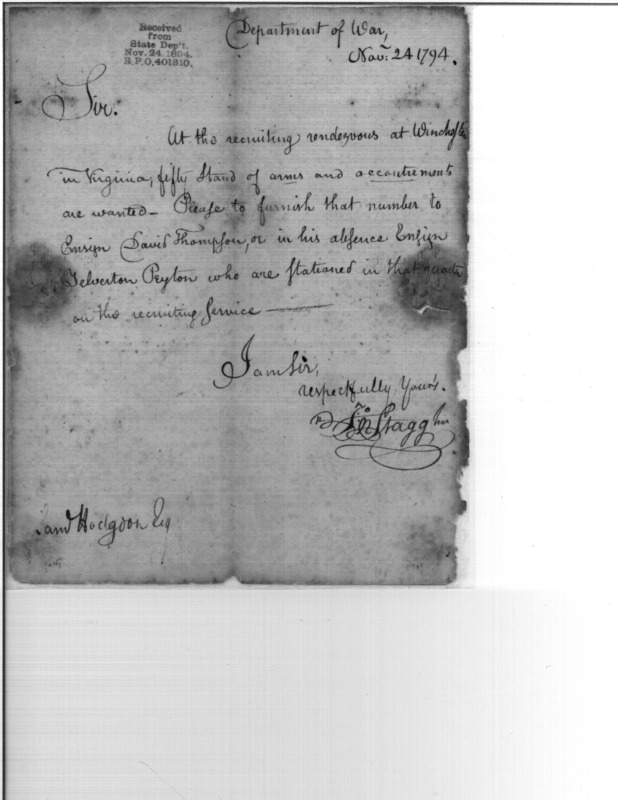 Received
from
State Dep't.
Nov. 24. 1894.
R.P.O. 401310.
Department of War,
Nov: 24 1794.
Sir.
At the recruiting rendezvous at Winchester
in Virginia, fifty stand of arms and accoutrements
are wanted — Please to furnish that number to
Ensign David Thompson, or in his absence Ensign
Yelverton Peyton who are stationed in that quarter
on the recruiting service —
I am Sir,
respectfully Yours.
Jno Stagg Jnr
Hodgdon Esq